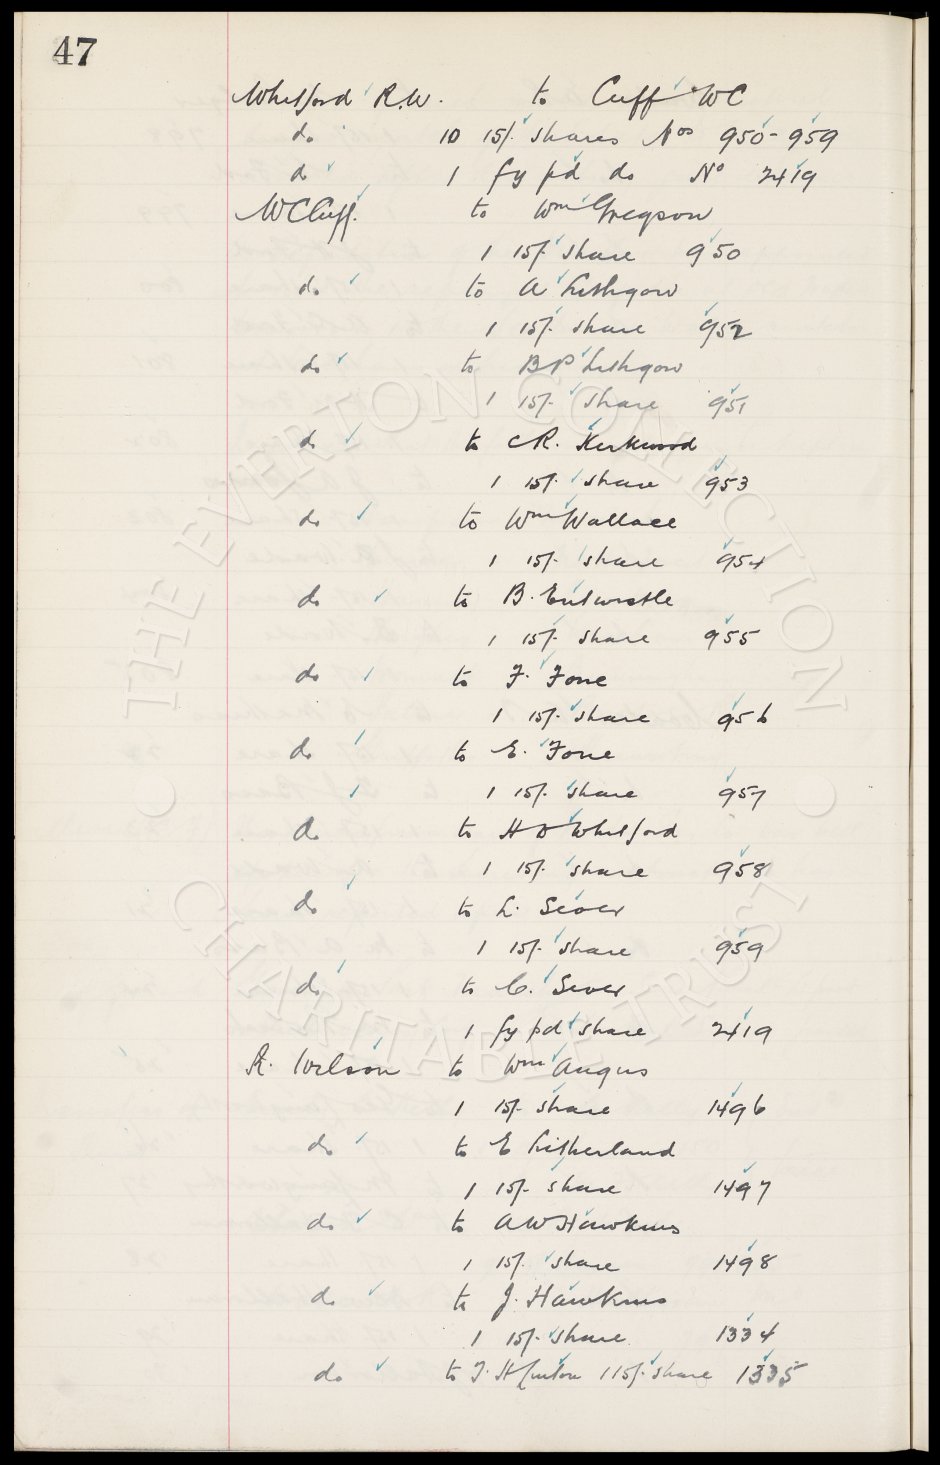 47
Whitford R.W. to Cuff WC
do 10 15/- shares Nos 950-959
do 1 fy pd do No 2419
WC Cuff. to Wm Gregson
1 15/- share 950
do to A Lithgow
1 15/- share 952
do to B P Lithgow
1 15/- share 951
do to C R. Kirkwood
1 15/- share 953
do to Wm Wallace
1 15/- share 954
do to B. Entwistle
1 15/- share 955
do to F. Fone
1 15/- share 956
do to E. Fone
1 15/- share 957
do to H D Whitford
1 15/- share 958
do to L. Sever
1 15/- share 959
do to C. Sever
1 fy pd share 2419
R. Wilson to Wm Angus
1 15/- share 1496
do to E Litherland
1 15/- share 1497
do to A W Hawkins
1 15/- share 1498
do to J. Hawkins
1 15/- share 1334
do to J. H 1 15/- share 1335
THE EVERTON COLLECTION
CHARITABLE TRUST